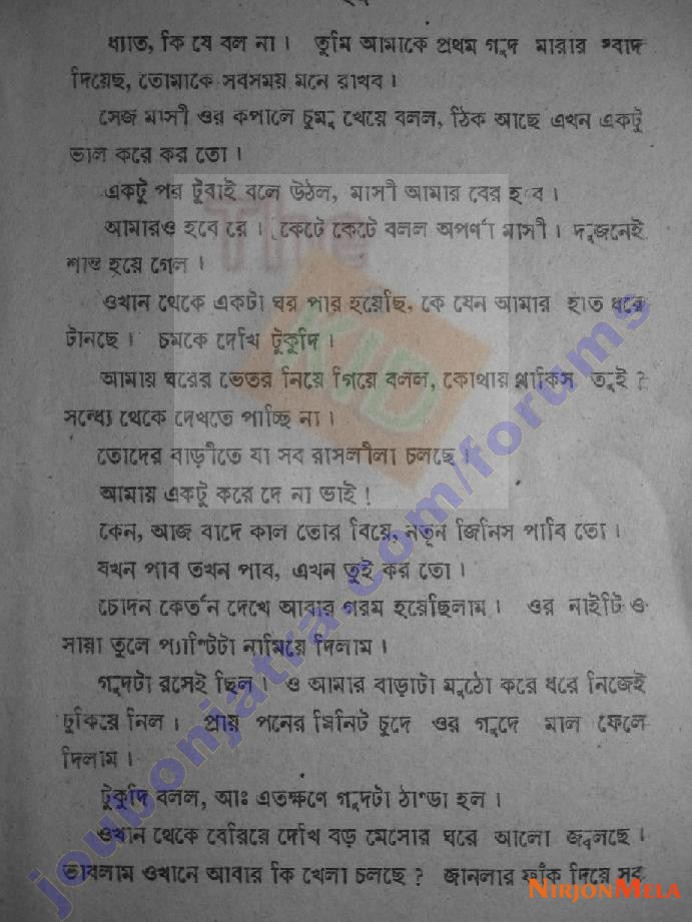 ধ্যাত, কি যে বল না। তুমি আমাকে প্রথম গুদ মারার স্বাদ
দিয়েছ, তোমাকে সবসময় মনে রাখব।
সেজ মাসী ওর কপালে চুমু খেয়ে বলল, ঠিক আছে এখন একটু
ভাল করে কর তো।
একটু পর টুবাই বলে উঠল, মাসী আমার বের হবে।
আমারও হবে রে। কেটে কেটে বলল অপর্ণা মাসী। দুজনেই
শান্ত হয়ে গেল।
ওখান থেকে একটা ঘর পার হয়েছি, কে যেন আমার হাত ধরে
টানছে। চমকে দেখি টুকুদি।
আমায় ঘরের ভেতর নিয়ে গিয়ে বলল, কোথায় থাকিস তুই?
সন্ধ্যে থেকে দেখতে পাচ্ছি না।
তোদের বাড়ীতে যা সব রাসলীলা চলছে।
আমায় একটু করে দে না ভাই!
কেন, আজ বাদে কাল তোর বিয়ে, নতুন জিনিস পাবি তো।
যখন পাব তখন পাব, এখন তুই কর তো।
চোদন কের্তন দেখে আবার গরম হয়েছিলাম। ওর নাইটি ও
সায়া তুলে প্যান্টিটা নামিয়ে দিলাম।
গুদটা রসেই ছিল। ও আমার বাড়াটা মুঠো করে ধরে নিজেই
ঢুকিয়ে নিল। প্রায় পনের মিনিট চুদে ওর গুদে মাল ফেলে
দিলাম।
টুকুদি বলল, আঃ এতক্ষণে গুদটা ঠাণ্ডা হল।
ওখান থেকে বেরিয়ে দেখি বড় মেসোর ঘরে আলো জ্বলছে।
ভাবলাম ওখানে আবার কি খেলা চলছে? জানলার ফাঁক দিয়ে সব
The
KID
joubonjatra.com/forums
NIRJONMELA